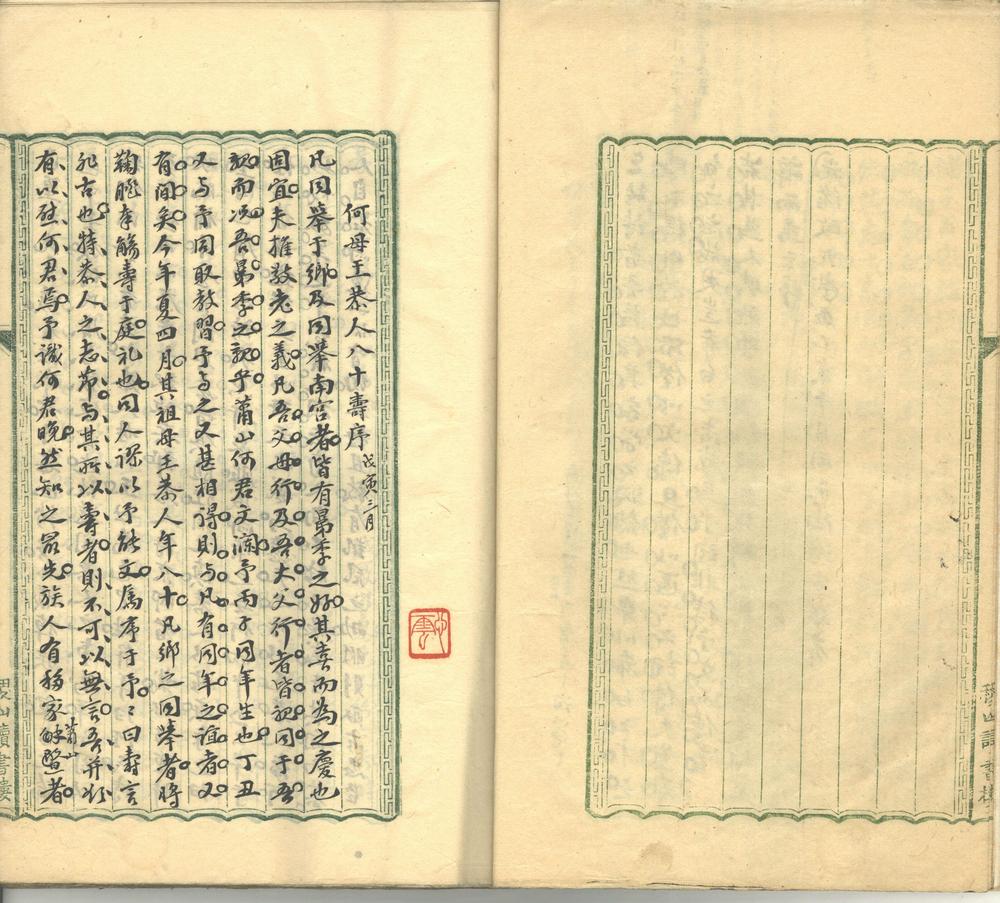 何母王恭人八十壽序 戊寅三月
凡同舉于鄉及同舉南宮者皆有晜季之好其喜而為之慶也
固宜夫推敬老之義凡吾父母行及吾大父行者皆視同于吾
親而况吾晜季之親乎蕭山何君文瀾予丙子同年生也丁丑
又与予同取教習予与之又甚相得則与凡有同年之誼者又
有間矣今年夏四月其祖母王恭人年八十凡鄉之同舉者將
奉觴壽于庭礼也同人謬以予能文属序于予〻曰壽言
非古也特恭人之志節与其所以壽者則不可以無言吾并
有以慰何君焉予識何君晚然知之最先族人有移家蕭山醫者
山讀書樓